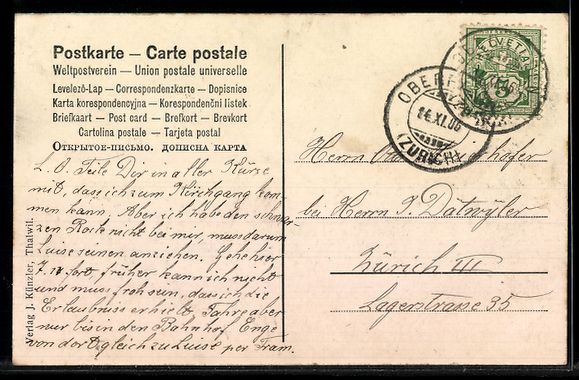 Postkarte — Carte postale
Weltpostverein — Union postale universelle
Levelező-Lap — Correspondenzkarte — Dopisnice
Karta korespondencyjna — Korespondenční listek
Briefkaart — Post card — Brefkort — Brevkort
Cartolina postale — Tarjeta postal
Открытое-письмо. дописна карта
L. O. Teile Dir in aller Kürze
mit, dass ich zum Kirchgang kom-
men kann, Aber ich habe den schwar-
zen Rock nicht bei mir, muss darum
Luise seinen anziehen. Gehe hier
7.11 fort, früher kann ich nicht
und muss froh sein, dass ich die
Erlaubniss erhielt. Fahre aber
nur bis in den Bahnhof Enge
von dort gleich zu Luise per Tram.
Verlag J. Künzler, Thalwil.
HELVETIA
5
OBER
24.XI.06
(ZÜRICH)
Herrn
bei Herrn J. Dätwyler
Zürich III
Lagerstrasse 35